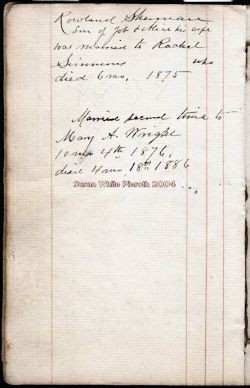 Rowland Sherman
Son of Job & Alice his wife
was married to Rachel
Simmons who
died 6 mo. 1875
Married second time to
Mary A. Wright
10 mo 4th 1876,
died 4 mo 18th 1886
Susan White Pieroth 2004